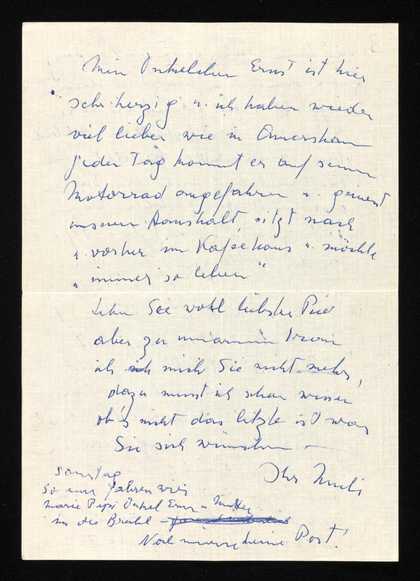 Mein Onkelchen Ernst ist hier
sehr herzig u. ich haben wieder
viel lieber wie in Amersham
jeden Tag kommt er auf seinem
Motorrad angefahren u. geniest
unseren Haushalt, sitzt nach
u. vorher im Kafeehaus u. möchte
"immer so leben"
Leben Sie wohl liebster
aber zu
ich mich Sie nicht mehr,
dazu musst ich schon wissen
ob's nicht das letzte ist was
Sie sich wünschen –
Ihr
Sonntag
so nun fahren wir
Marie Pepi Onkel Ernst u. Mutter
in die Brühl
Noch immer keine Post!